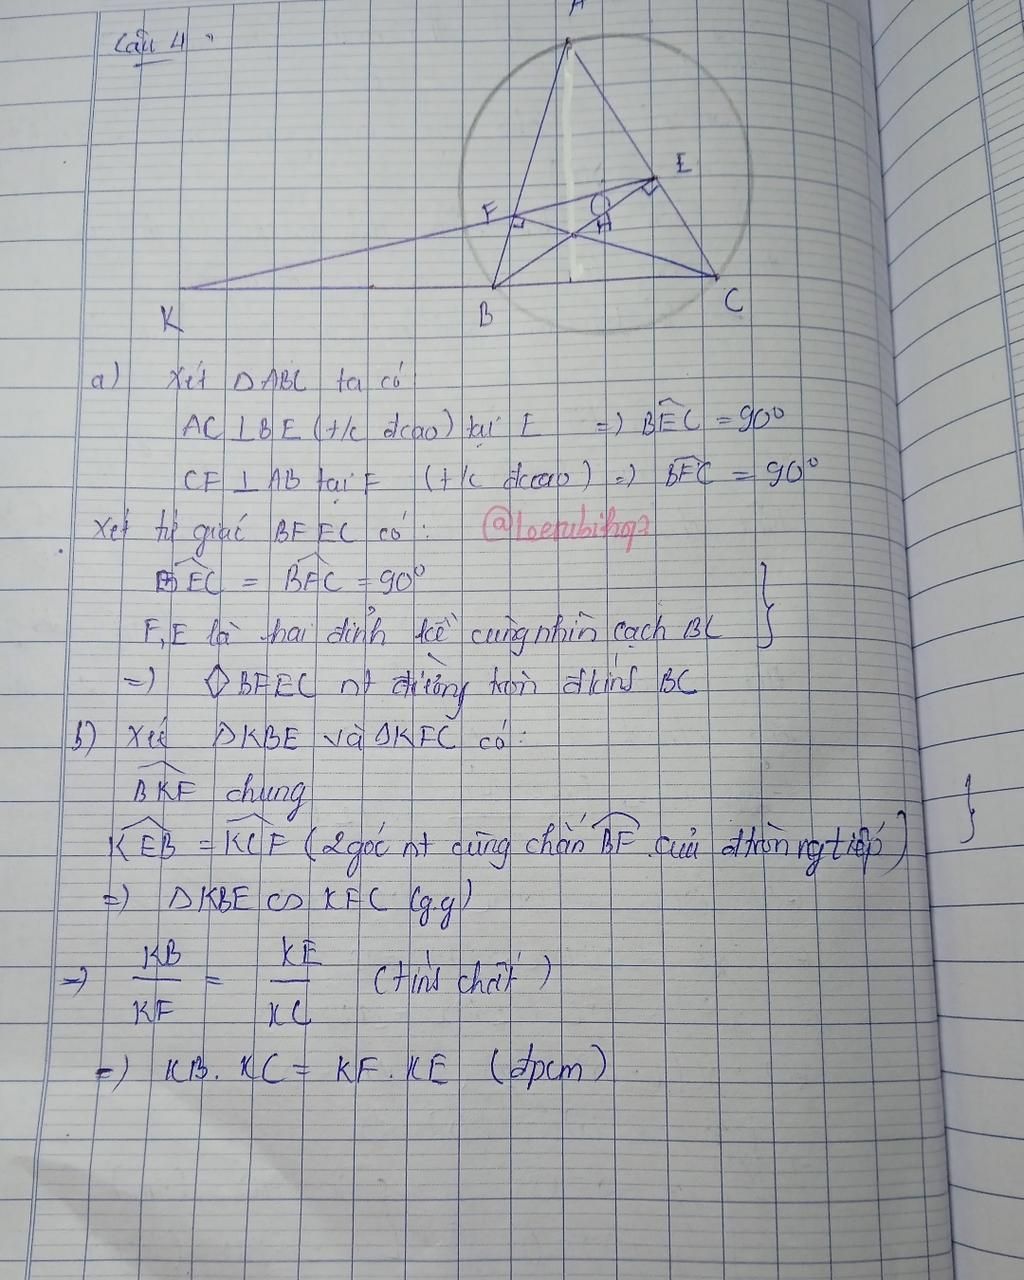 Câu 4:
A
E
F
H
K
B
C
a) Xét ΔABC ta có
AC ⊥ BE (t/c đcao) tại E => BEC = 90°
CF ⊥ AB tại F (t/c đcao) => BFC = 90°
Xét tứ giác BFEC có: @Loerubihq?
BEC = BFC = 90°
F, E là hai đỉnh kề cùng nhìn cạch BC }
=> ◇BFEC nt đường tròn đkính BC
b) Xét ΔKBE và ΔKFC có:
BKF chung
KEB = KCF (2 góc nt cùng chắn BF của đtròn ngtiếp) }
=> ΔKBE ∽ KFC (g.g)
=> KB/KF = KE/KC (tính chất)
=> KB. KC = KF. KE (đpcm)